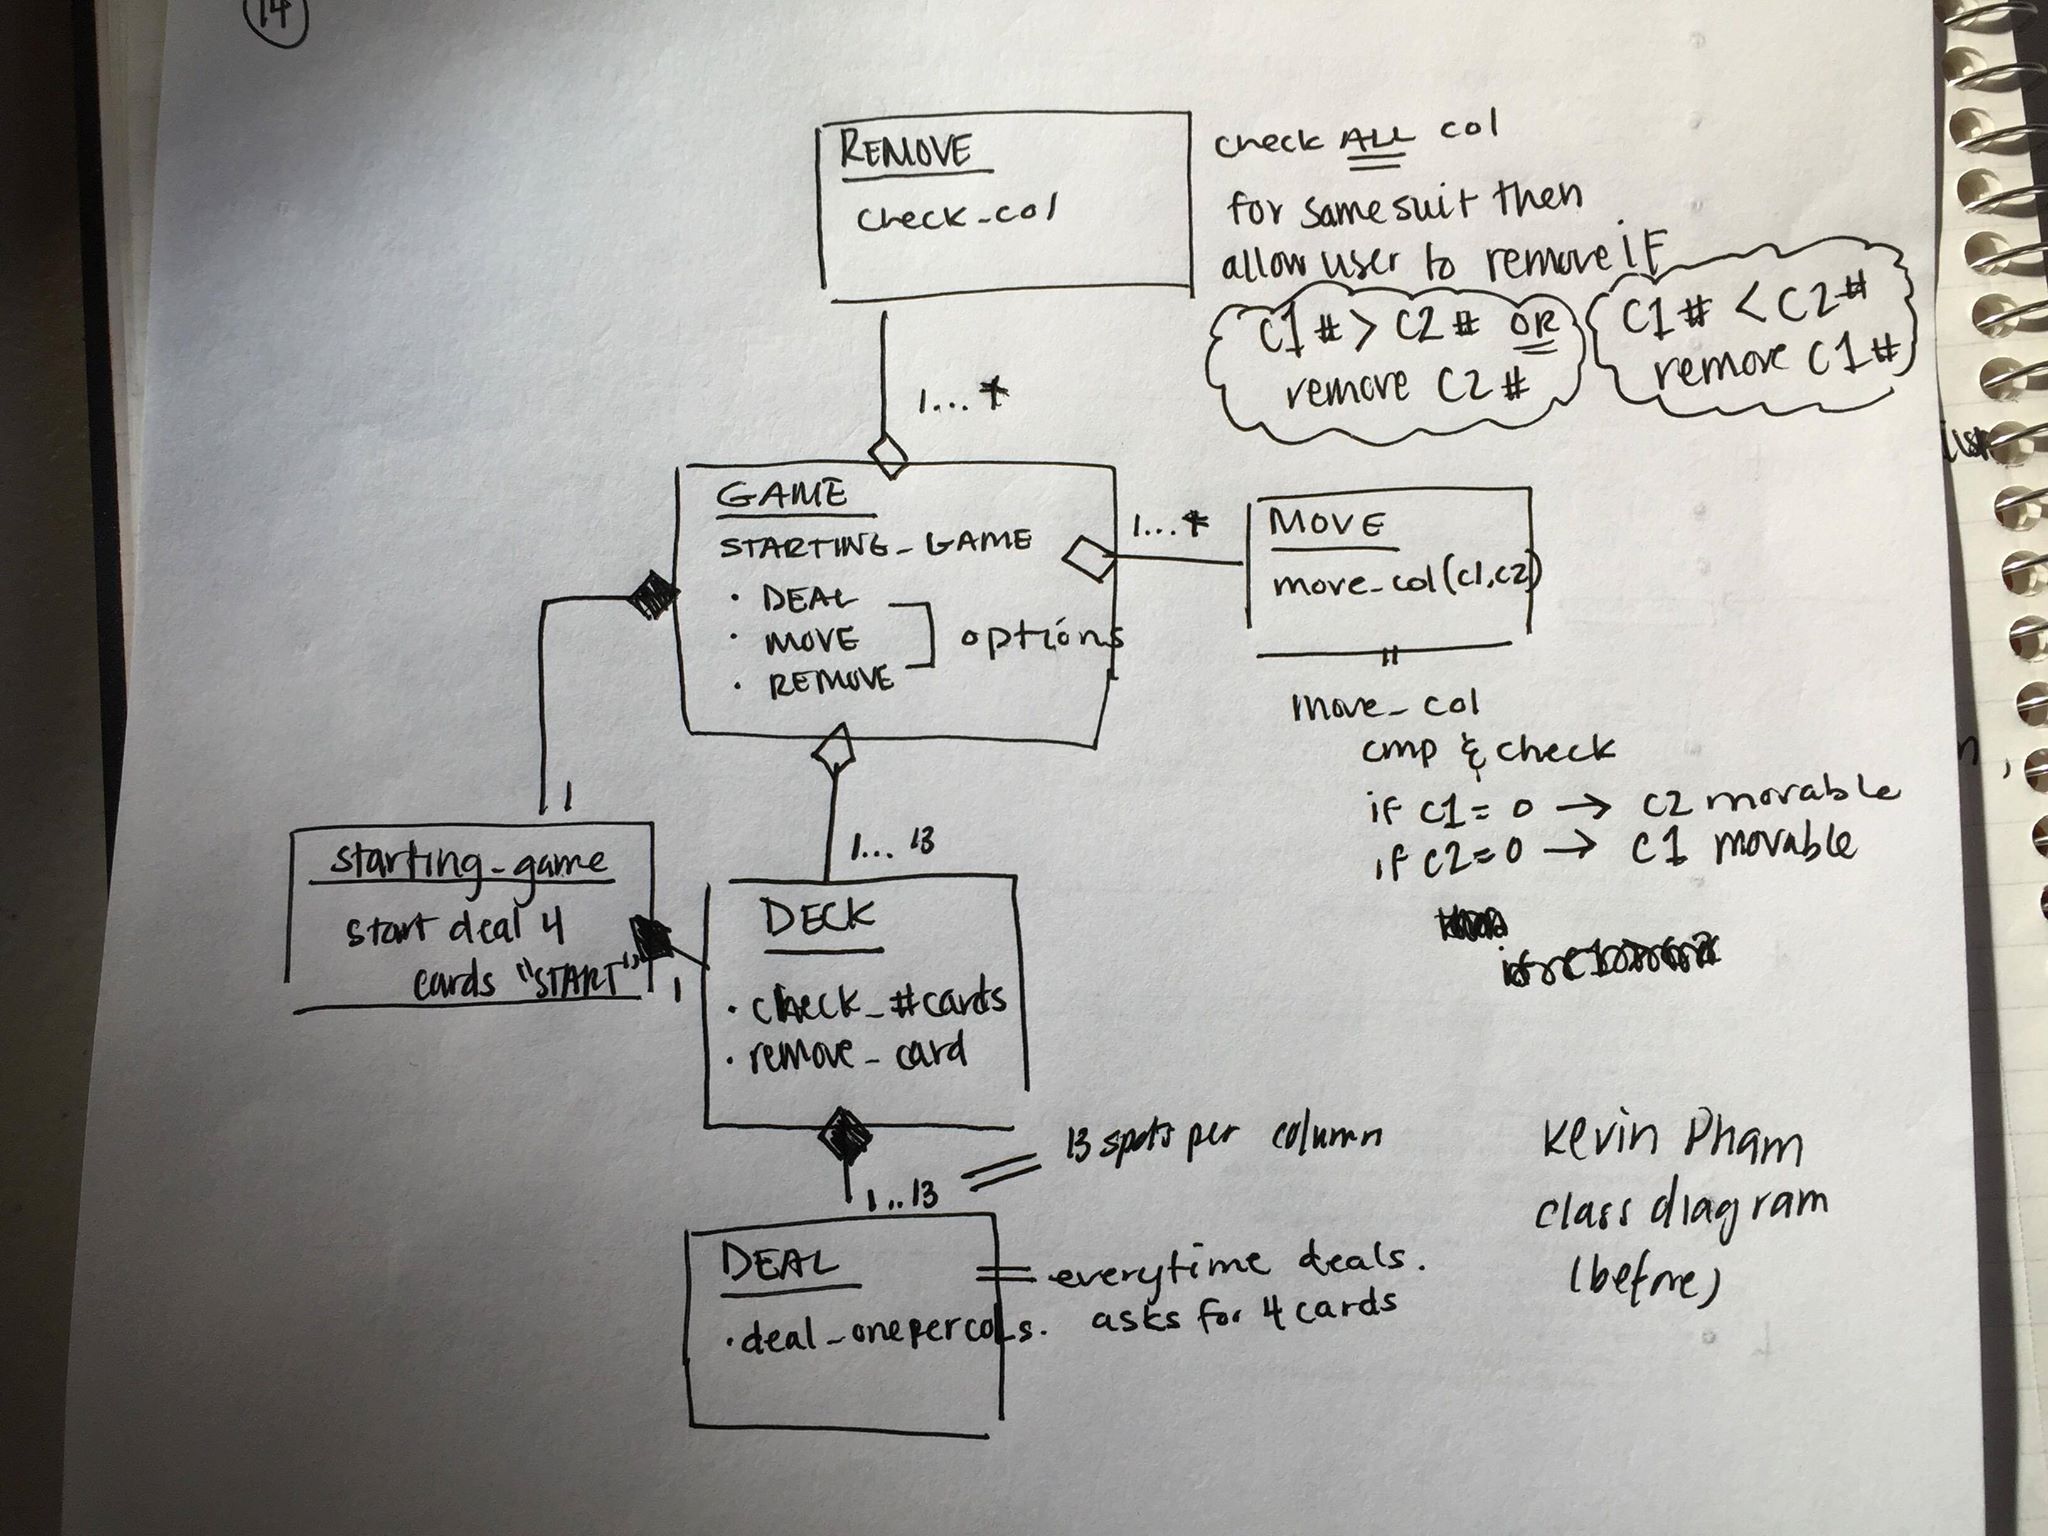 14
REMOVE
check_col
check ALL col
for same suit then
allow user to remove if
C1 # > C2 # OR
remove C2 #
C1 # < C2 #
remove C1 #
1...*
GAME
STARTING_GAME
• DEAL
• MOVE
• REMOVE
options
1...*
MOVE
move_col(c1,c2)
move_col
cmp & check
if c1 = 0 → c2 movable
if c2 = 0 → c1 movable
1
starting_game
start deal 4
cards "START"
1
1... 13
DECK
• check_#cards
• remove_card
1..13
13 spots per column
DEAL
• deal_onepercols.
everytime deals.
asks for 4 cards
Kevin Pham
class diagram
(before)